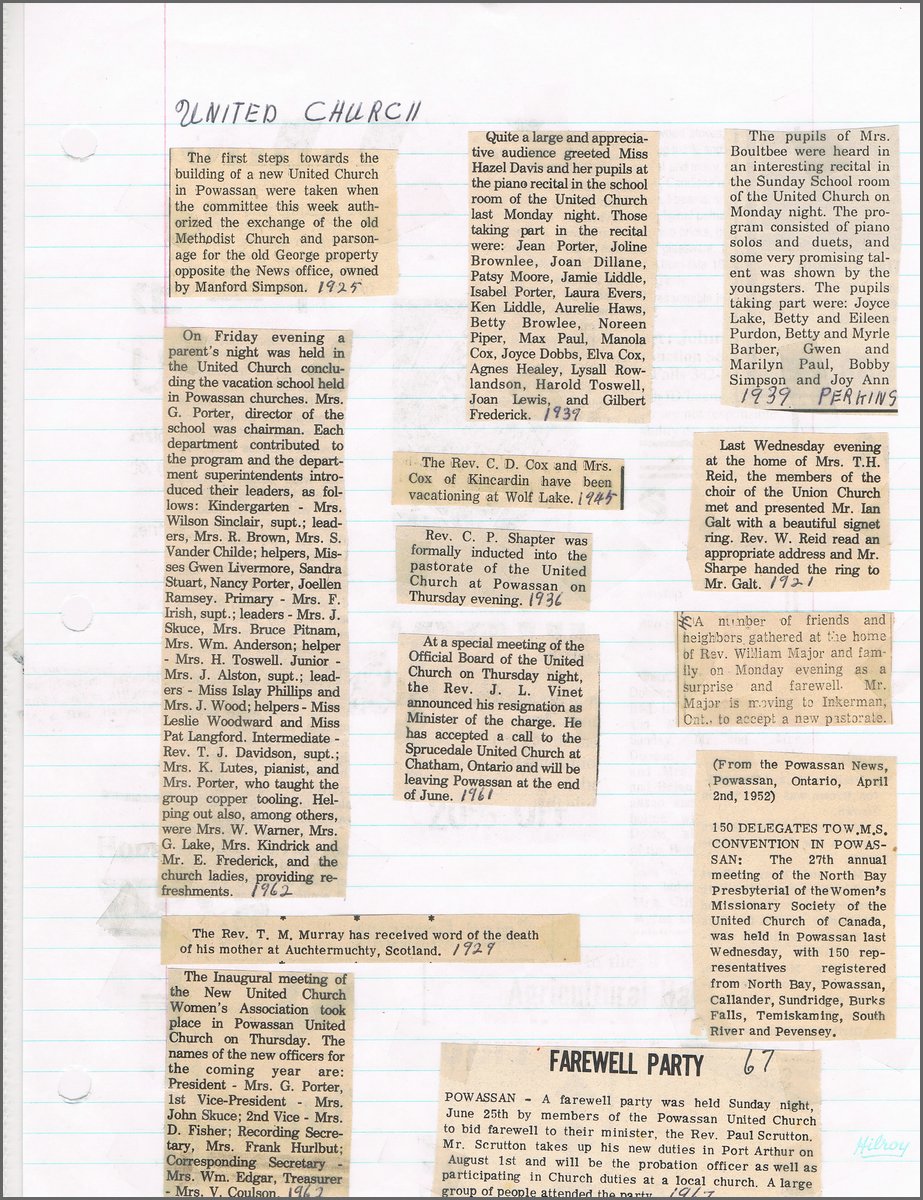 UNITED CHURCH
The first steps towards the
building of a new United Church
in Powassan were taken when
the committee this week auth-
orized the exchange of the old
Methodist Church and parson-
age for the old George property
opposite the News office, owned
by Manford Simpson. 1925
On Friday evening a
parent's night was held in
the United Church conclu-
ding the vacation school held
in Powassan churches. Mrs.
G. Porter, director of the
school was chairman. Each
department contributed to
the program and the depart-
ment superintendents intro-
duced their leaders, as fol-
lows: Kindergarten - Mrs.
Wilson Sinclair, supt.; lead-
ers, Mrs. R. Brown, Mrs. S.
Vander Childe; helpers, Mis-
ses Gwen Livermore, Sandra
Stuart, Nancy Porter, Joellen
Ramsey. Primary - Mrs. F.
Irish, supt.; leaders - Mrs. J.
Skuce, Mrs. Bruce Pitnam,
Mrs. Wm. Anderson; helper
- Mrs. H. Toswell. Junior -
Mrs. J. Alston, supt.; lead-
ers - Miss Islay Phillips and
Mrs. J. Wood; helpers - Miss
Leslie Woodward and Miss
Pat Langford. Intermediate -
Rev. T. J. Davidson, supt.;
Mrs. K. Lutes, pianist, and
Mrs. Porter, who taught the
group copper tooling. Hel-
ping out also, among others,
were Mrs. W. Warner, Mrs.
G. Lake, Mrs. Kindrick and
Mr. E. Frederick, and the
church ladies, providing re-
freshments. 1962
* * *
The Rev. T. M. Murray has received word of the death
of his mother at Auchtermuchty, Scotland. 1929
The Inaugural meeting of
the New United Church
Women's Association took
place in Powassan United
Church on Thursday. The
names of the new officers for
the coming year are:
President - Mrs. G. Porter,
1st Vice-President - Mrs.
John Skuce; 2nd Vice - Mrs.
D. Fisher; Recording Secre-
tary, Mrs. Frank Hurlbut;
Corresponding Secretary -
Mrs. Wm. Edgar, Treasurer
- Mrs. V. Coulson. 1962
Quite a large and apprecia-
tive audience greeted Miss
Hazel Davis and her pupils at
the piano recital in the school
room of the United Church
last Monday night. Those
taking part in the recital
were: Jean Porter, Joline
Brownlee, Joan Dillane,
Patsy Moore, Jamie Liddle,
Isabel Porter, Laura Evers,
Ken Liddle, Aurelie Haws,
Betty Browlee, Noreen
Piper, Max Paul, Manola
Cox, Joyce Dobbs, Elva Cox,
Agnes Healey, Lysall Row-
landson, Harold Toswell,
Joan Lewis, and Gilbert
Frederick. 1939
The Rev. C. D. Cox and Mrs.
Cox of Kincardin have been
vacationing at Wolf Lake. 1945
Rev. C. P. Shapter was
formally inducted into the
pastorate of the United
Church at Powassan on
Thursday evening. 1936
At a special meeting of the
Official Board of the United
Church on Thursday night,
the Rev. J. L. Vinet
announced his resignation as
Minister of the charge. He
has accepted a call to the
Sprucedale United Church at
Chatham, Ontario and will be
leaving Powassan at the end
of June. 1961
The pupils of Mrs.
Boultbee were heard in
an interesting recital in
the Sunday School room
of the United Church on
Monday night. The pro-
gram consisted of piano
solos and duets, and
some very promising tal-
ent was shown by the
youngsters. The pupils
taking part were: Joyce
Lake, Betty and Eileen
Purdon, Betty and Myrle
Barber, Gwen and
Marilyn Paul, Bobby
Simpson and Joy Ann
1939 PERKINS
Last Wednesday evening
at the home of Mrs. T.H.
Reid, the members of the
choir of the Union Church
met and presented Mr. Ian
Galt with a beautiful signet
ring. Rev. W. Reid read an
appropriate address and Mr.
Sharpe handed the ring to
Mr. Galt. 1921
A number of friends and
neighbors gathered at the home
of Rev. William Major and fam-
ily on Monday evening as a
surprise and farewell. Mr.
Major is moving to Inkerman,
Ont., to accept a new pastorate.
(From the Powassan News,
Powassan, Ontario, April
2nd, 1952)
150 DELEGATES TO W.M.S.
CONVENTION IN POWAS-
SAN: The 27th annual
meeting of the North Bay
Presbyterial of the Women's
Missionary Society of the
United Church of Canada,
was held in Powassan last
Wednesday, with 150 rep-
resentatives registered
from North Bay, Powassan,
Callander, Sundridge, Burks
Falls, Temiskaming, South
River and Pevensey.
FAREWELL PARTY 67
POWASSAN - A farewell party was held Sunday night,
June 25th by members of the Powassan United Church
to bid farewell to their minister, the Rev. Paul Scrutton.
Mr. Scrutton takes up his new duties in Port Arthur on
August 1st and will be the probation officer as well as
participating in Church duties at a local church. A large
group of people attended the party. 1967
Hilroy